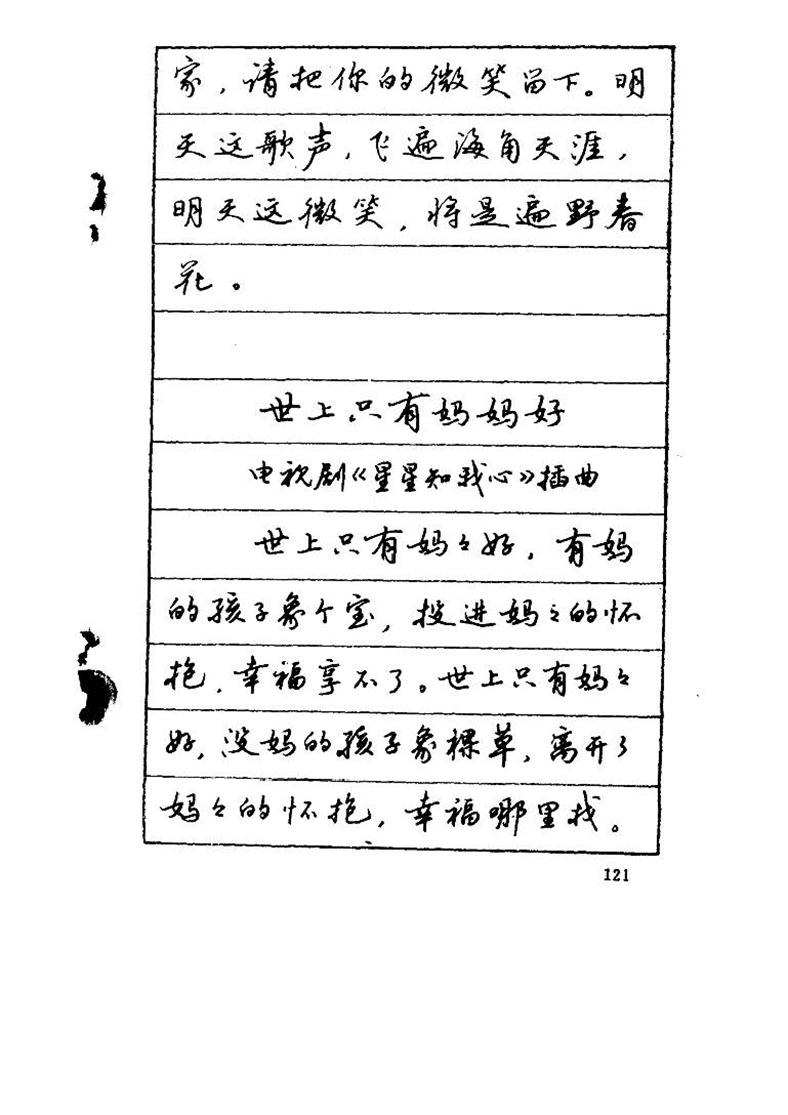 家，请把你的微笑留下。明
天这歌声，飞遍海角天涯，
明天这微笑，将是遍野春
花。
世上只有妈妈好
电视剧《星星知我心》插曲
世上只有妈々好，有妈
的孩子象个宝，投进妈々的怀
抱，幸福享不了。世上只有妈々
好，没妈的孩子象棵草，离开了
妈々的怀抱，幸福哪里找。
121